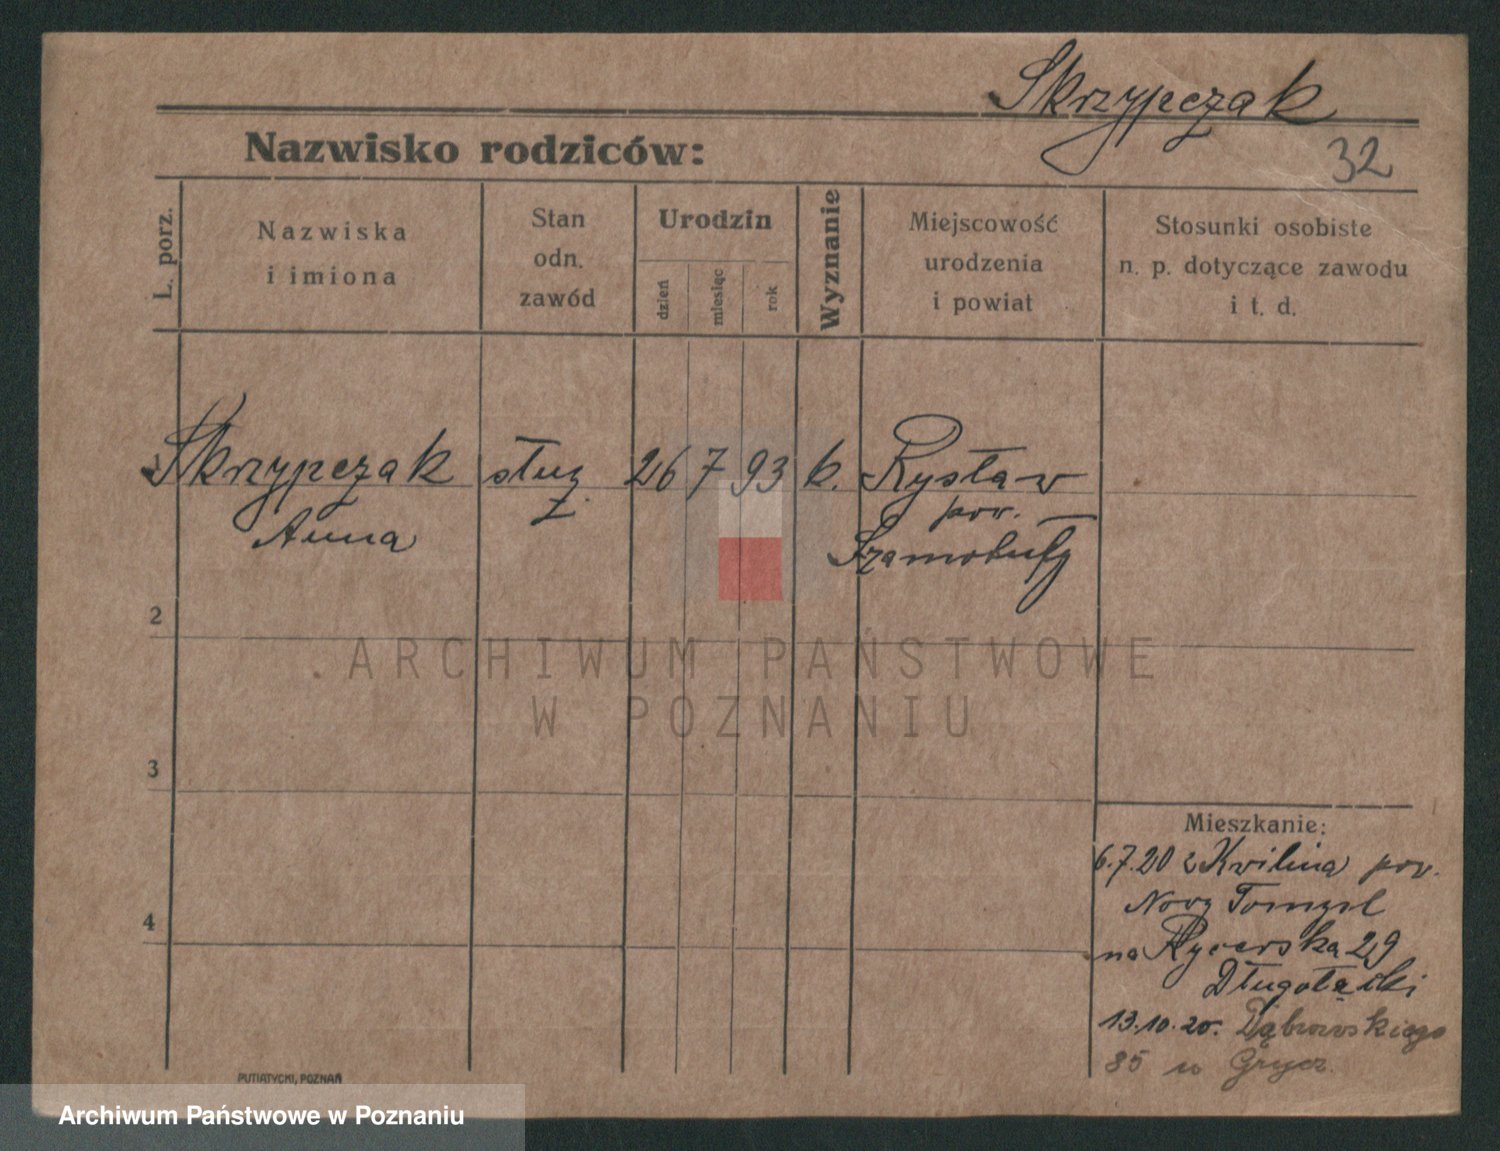 Skrzypczak
32
Nazwisko rodziców:
L. porz.
Nazwiska
i imiona
Stan
odn.
zawód
Urodzin
dzień
miesiąc
rok
Wyznanie
Miejscowość
urodzenia
i powiat
Stosunki osobiste
n. p. dotyczące zawodu
i t. d.
Skrzypczak służ. 26 7 93 k. Rystaw
Anna pow.
Szamotuły
2
ARCHIWUM PAŃSTWOWE
W POZNANIU
3
Mieszkanie:
6.7.20 z Kvilina pow.
4
Novy Tomysl
na Rycerska 29
13.10.20. Dąbrowskiego
85 u
PUTIATYCKI, POZNAŃ
Archiwum Państwowe w Poznaniu